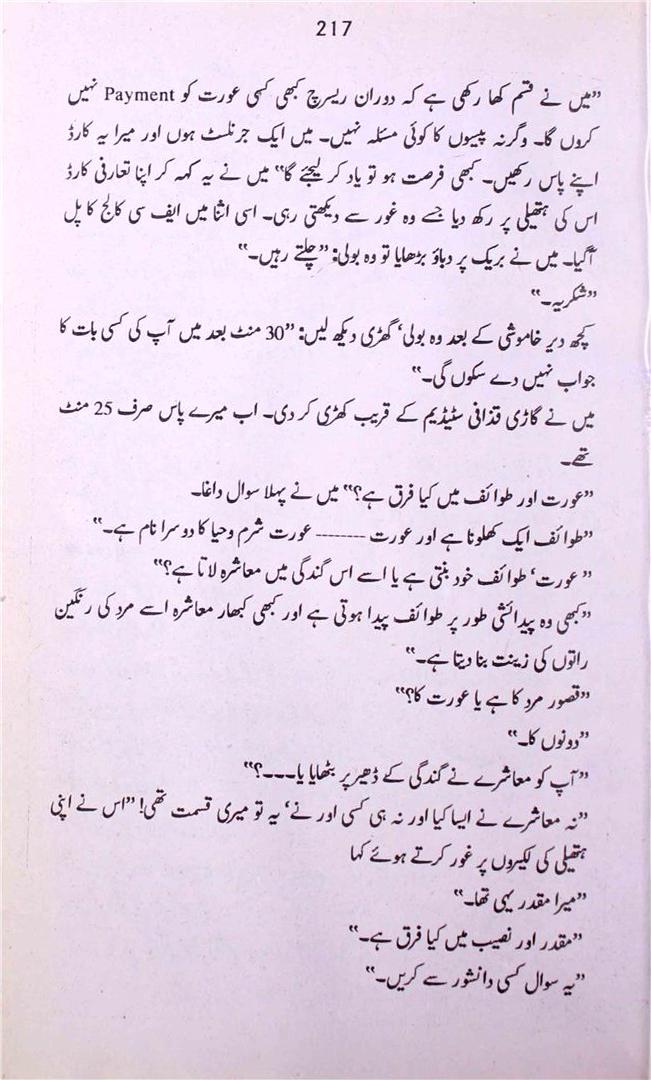 217
”میں نے قسم کھا رکھی ہے کہ دوران ریسرچ کبھی کسی عورت کو Payment نہیں
کروں گا۔ وگرنہ پیسوں کا کوئی مسئلہ نہیں۔ میں ایک جرنلسٹ ہوں اور میرا یہ کارڈ
اپنے پاس رکھیں۔ کبھی فرصت ہو تو یاد کر لیجئے گا“ میں نے یہ کہہ کر اپنا تعارفی کارڈ
اس کی ہتھیلی پر رکھ دیا جسے وہ غور سے دیکھتی رہی۔ اسی اثنا میں ایف سی کالج کا پل
آگیا۔ میں نے بریک پر دباؤ بڑھایا تو وہ بولی: ”چلتے رہیں۔“
”شکریہ۔“
کچھ دیر خاموشی کے بعد وہ بولی‘ گھڑی دیکھ لیں: ”30 منٹ بعد میں آپ کی کسی بات کا
جواب نہیں دے سکوں گی۔“
میں نے گاڑی قذافی سٹیڈیم کے قریب کھڑی کر دی۔ اب میرے پاس صرف 25 منٹ
تھے۔
”عورت اور طوائف میں کیا فرق ہے؟“ میں نے پہلا سوال داغا۔
”طوائف ایک کھلونا ہے اور عورت -------- عورت شرم وحیا کا دوسرا نام ہے۔“
”عورت‘ طوائف خود بنتی ہے یا اسے اس گندگی میں معاشرہ لاتا ہے؟“
”کبھی وہ پیدائشی طور پر طوائف پیدا ہوتی ہے اور کبھی کبھار معاشرہ اسے مرد کی رنگین
راتوں کی زینت بنا دیتا ہے۔“
”قصور مرد کا ہے یا عورت کا؟“
”دونوں کا۔“
”آپ کو معاشرے نے گندگی کے ڈھیر پر بٹھایا یا۔۔۔؟“
”نہ معاشرے نے ایسا کیا اور نہ ہی کسی اور نے‘ یہ تو میری قسمت تھی! ”اس نے اپنی
ہتھیلی کی لکیروں پر غور کرتے ہوئے کہا
”میرا مقدر یہی تھا۔“
”مقدر اور نصیب میں کیا فرق ہے۔“
”یہ سوال کسی دانشور سے کریں۔“